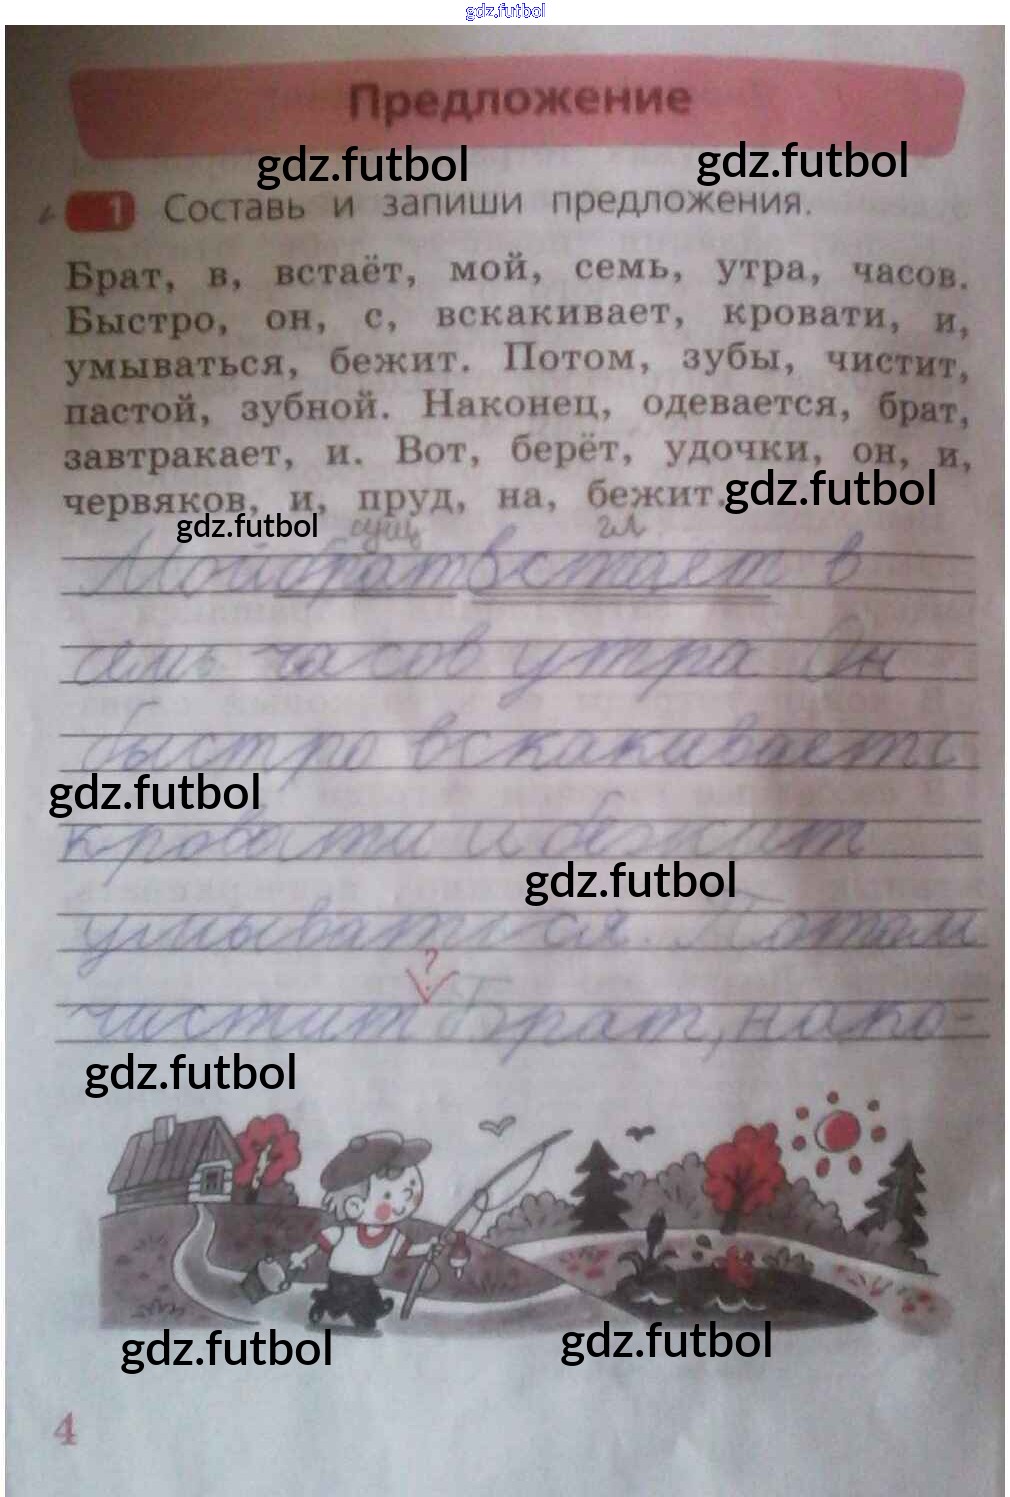 gdz.futbol
Предложение
gdz.futbol gdz.futbol
1 Составь и запиши предложения.
Брат, в, встаёт, мой, семь, утра, часов.
Быстро, он, с, вскакивает, кровати, и,
умываться, бежит. Потом, зубы, чистит,
пастой, зубной. Наконец, одевается, брат,
завтракает, и. Вот, берёт, удочки, он, и,
червяков, и, пруд, на, бежит.
gdz.futbol
gdz.futbol
сущ гл.
Мой брат встает в
семь часов утра Он
быстро вскакивает с
gdz.futbol
кровати и бежит
gdz.futbol
умываться. Потом
?
чистит Брат, нако-
gdz.futbol
gdz.futbol gdz.futbol
4